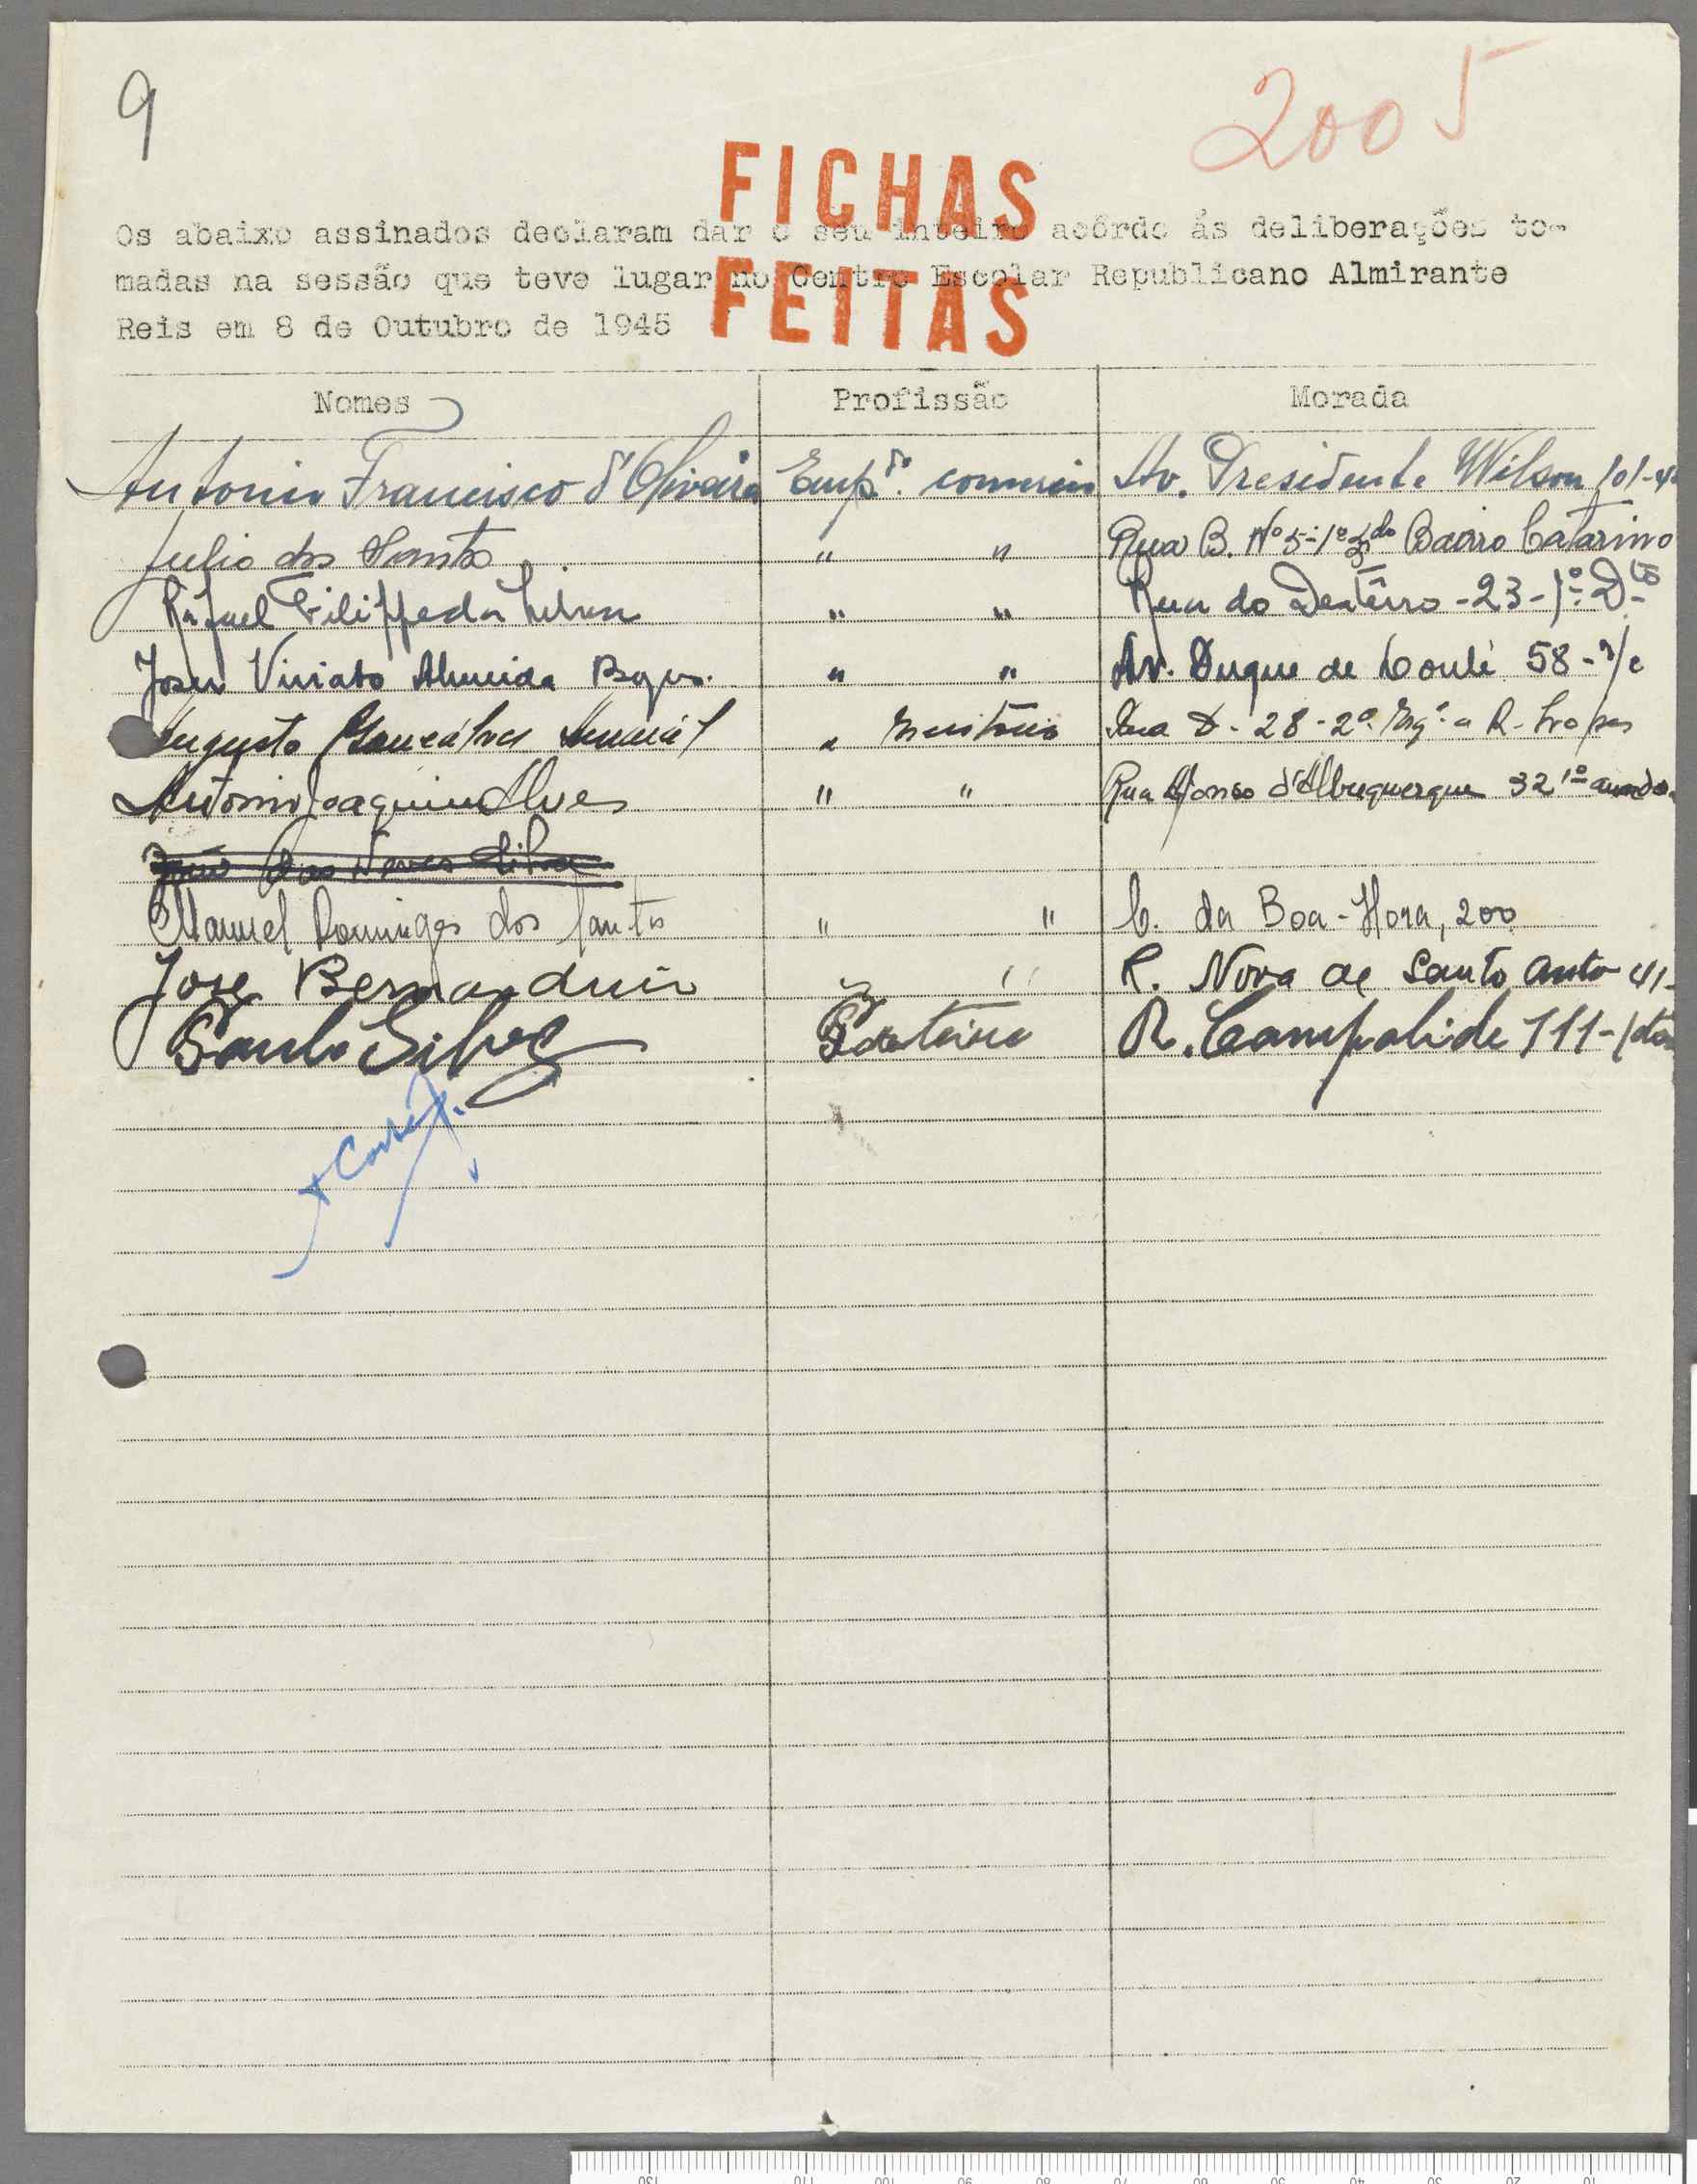 9
2005
FICHAS
FEITAS
Os abaixo assinados declaram dar o seu inteiro acôrdo ás deliberações to-
madas na sessão que teve lugar no Centro Escolar Republicano Almirante
Reis em 8 de Outubro de 1945
Nomes Profissão Morada
Antonio Francisco d'Oliveira Emp.do comercio Av. Presidente Wilson 101-4
Julio dos Santos " " Rua B. Nº 5-1º Bairro Catarino
Rafael Filippe da " " Rua do Desterro - 23 - 1º Dto
Viriato Almeida " " Av. Duque de Loulé 58 - r/c
Augusto Gonçalves " Escritório Rua D - 28 - 2º Esqº a R.
Antonio Joaquim Alves " " Rua Afonso d'Albuquerque 32 1º
João das Neves Silva
Manuel Domingos dos Santos " " C. da Boa-Hora, 200
Jose Bernardino " " R. Nova de Santo Anto 41-
Paulo Silva Porteiro R. Campolide 111-